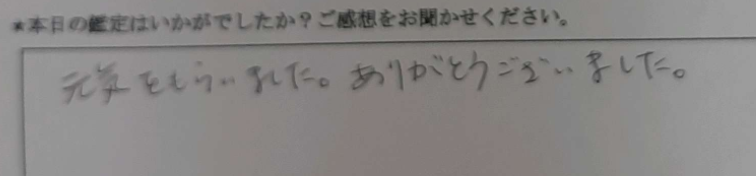 *本日の鑑定はいかがでしたか？ご感想をお聞かせください。
元気をもらいました。ありがとうございました。